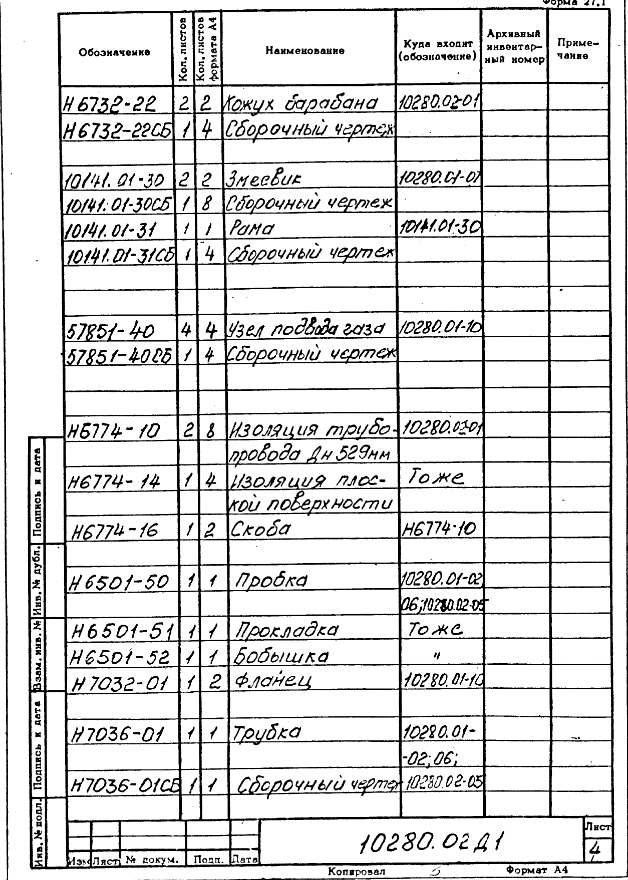 Форма 27.1
Обозначение Кол. листов Кол. листов формата А4 Наименование Куда входит (обозначение) Архивный инвентарный номер Примечание
Н6732-22 2 2 Кожух барабана 10280.02-01
Н6732-22СБ 1 4 Сборочный чертеж
10141.01-30 2 2 Змеевик 10280.01-01
10141.01-30СБ 1 8 Сборочный чертеж
10141.01-31 1 1 Рама 10141.01-30
10141.01-31СБ 1 4 Сборочный чертеж
57851-40 4 4 Узел подвода газа 10280.01-10
57851-40СБ 1 4 Сборочный чертеж
Н6774-10 2 8 Изоляция трубо- 10280.03-01
провода Дн 529мм
Н6774-14 1 4 Изоляция плос- То же
кой поверхности
Н6774-16 1 2 Скоба Н6774-10
Н6501-50 1 1 Пробка 10280.01-02
06;10280.02-05
Н6501-51 1 1 Прокладка То же
Н6501-52 1 1 Бобышка "
Н7032-01 1 2 Фланец 10280.01-10
Н7036-01 1 1 Трубка 10280.01-
-02;06;
Н7036-01СБ 1 1 Сборочный чертеж 10280.02-05
Подпись и дата
Инв. № дубл.
Взам. инв. №
Подпись и дата
Инв. № подл.
10280.02Д1
Лист
4
Изм Лист № докум. Подп. Дата
Копировал Формат А4